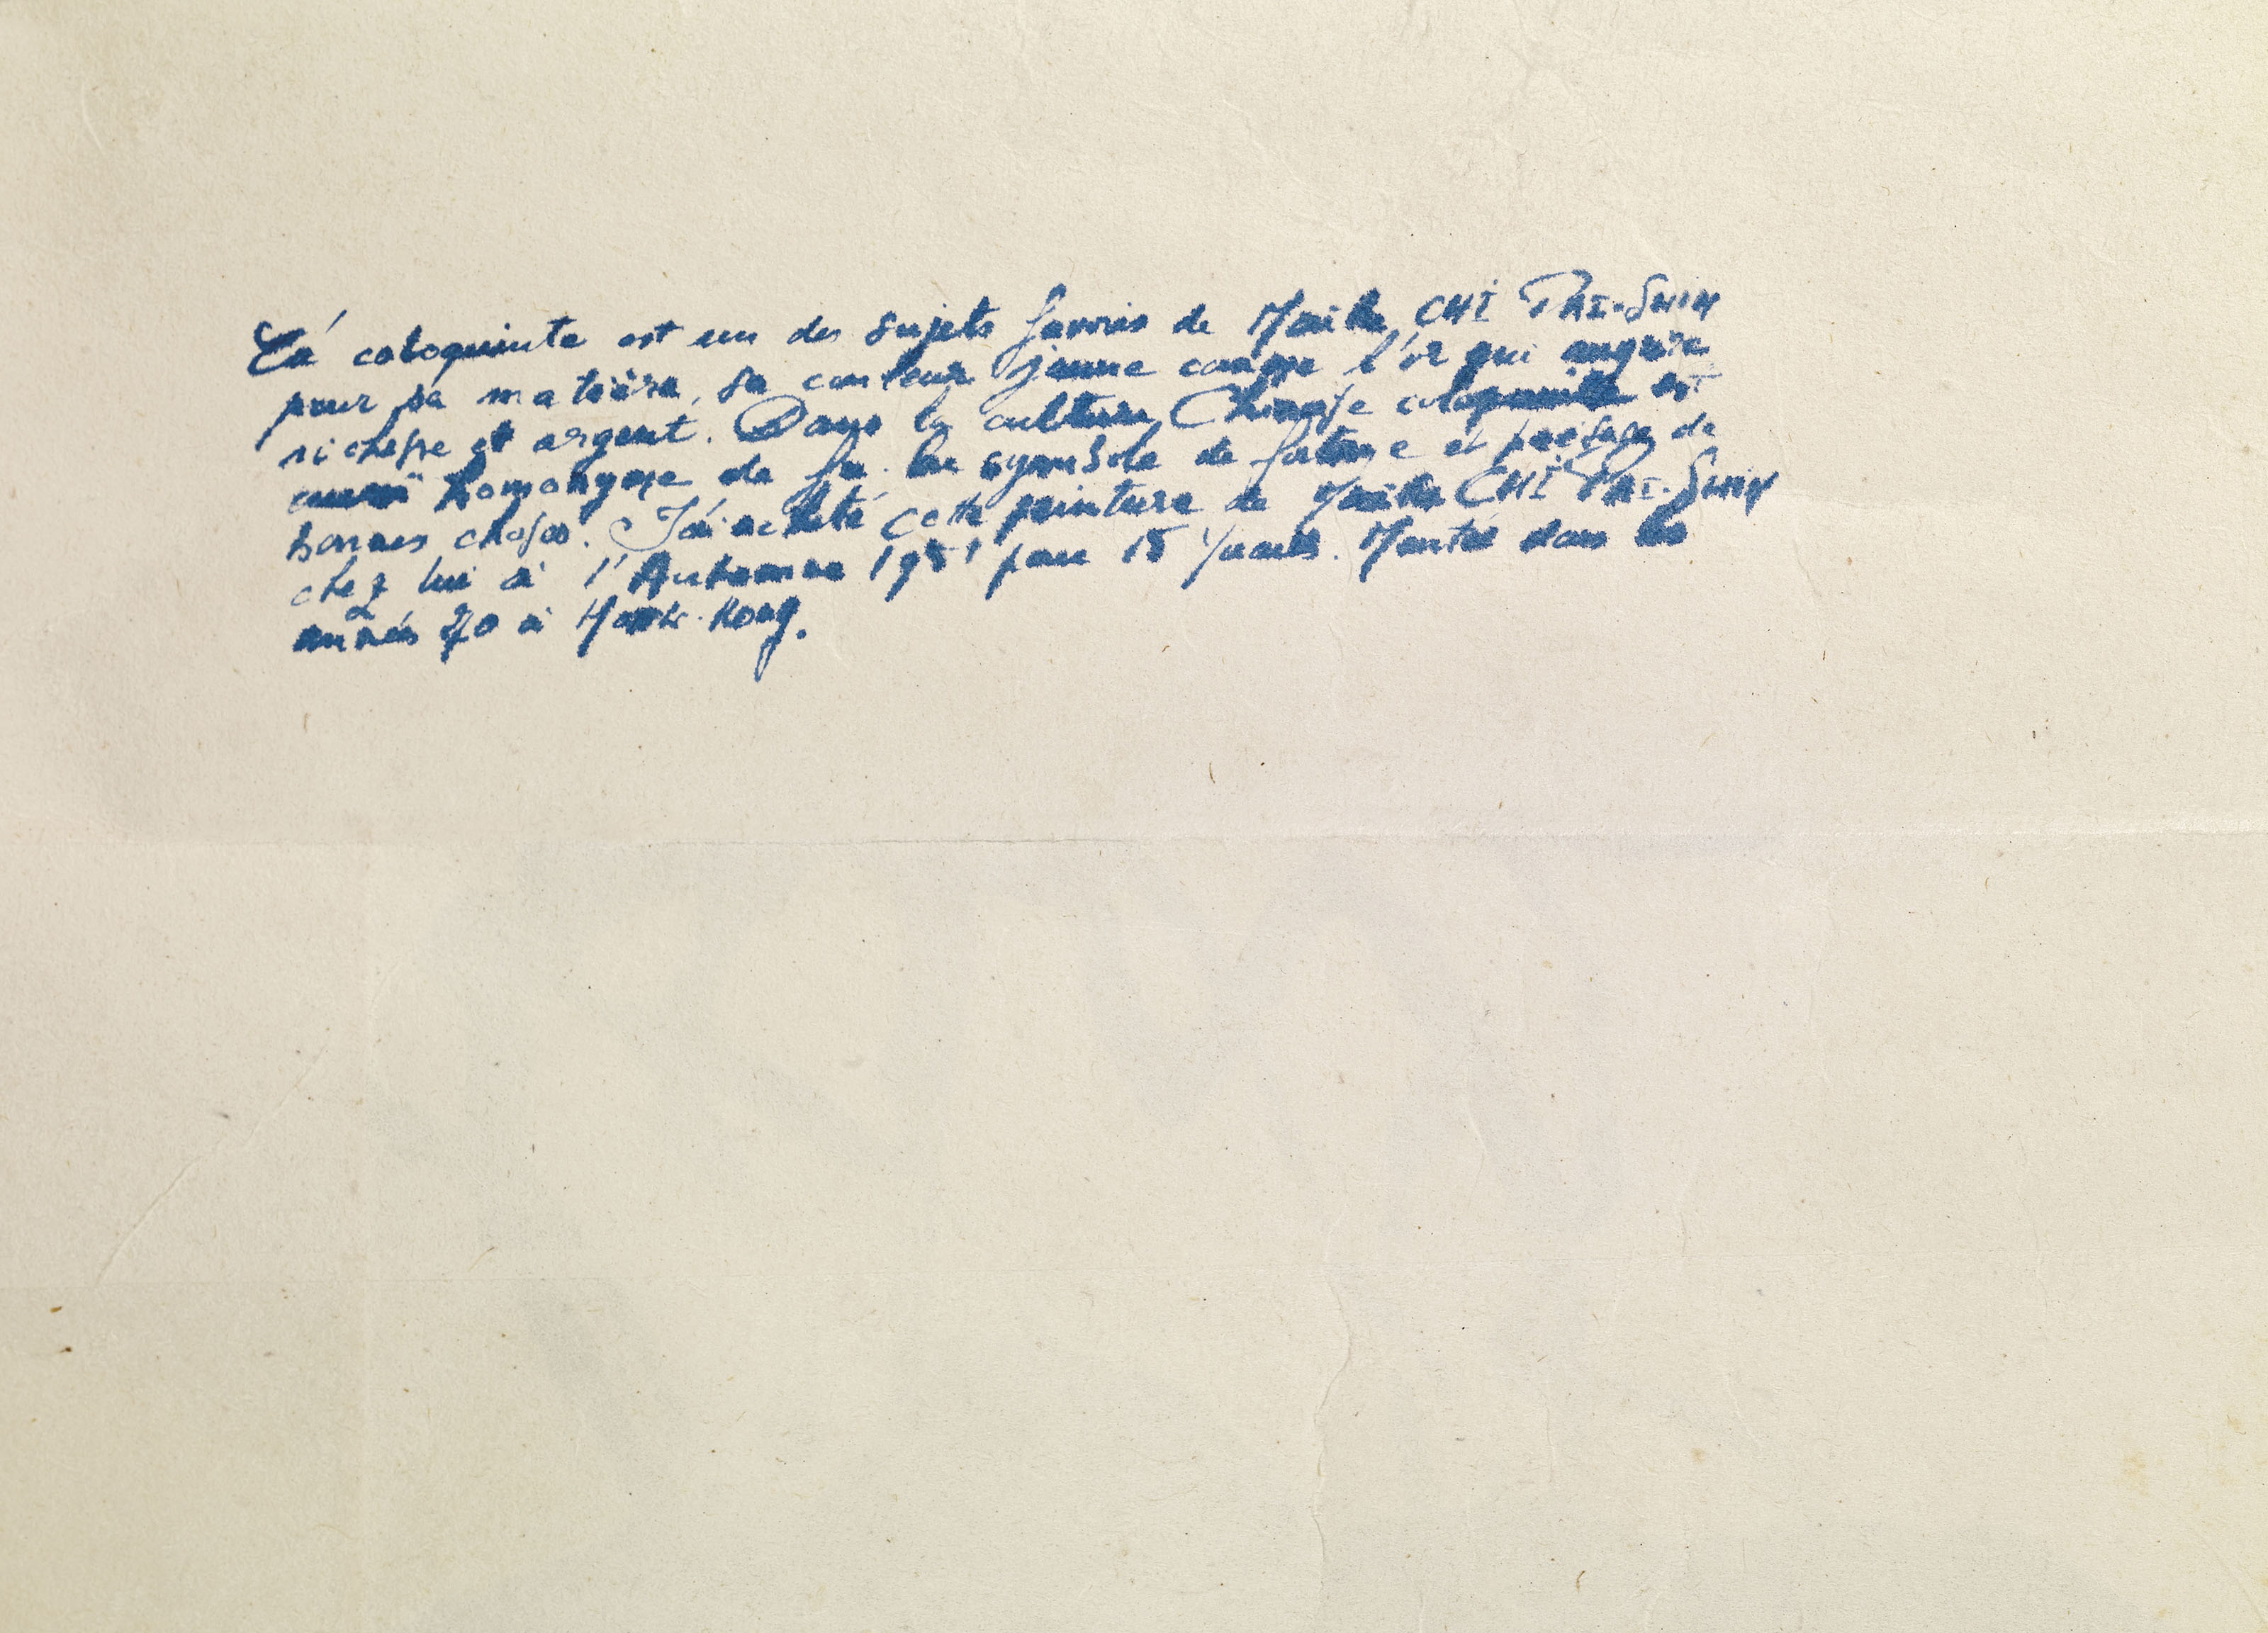 La coloquinte est un des sujets favoris de Maître CHI PAI-SHIH
pour sa matière, sa couleur jaune comme l'or qui augure
richesse et argent. Dans la culture Chinoise coloquinte est
aussi homonyme de fu. Le symbole de fortune et présage de
bonnes choses. J'ai acheté cette peinture de Maître CHI PAI-SHIH
chez lui à l'Automne 1951 pour 15 Yuans. Montée dans les
années 70 à Hong-Kong.